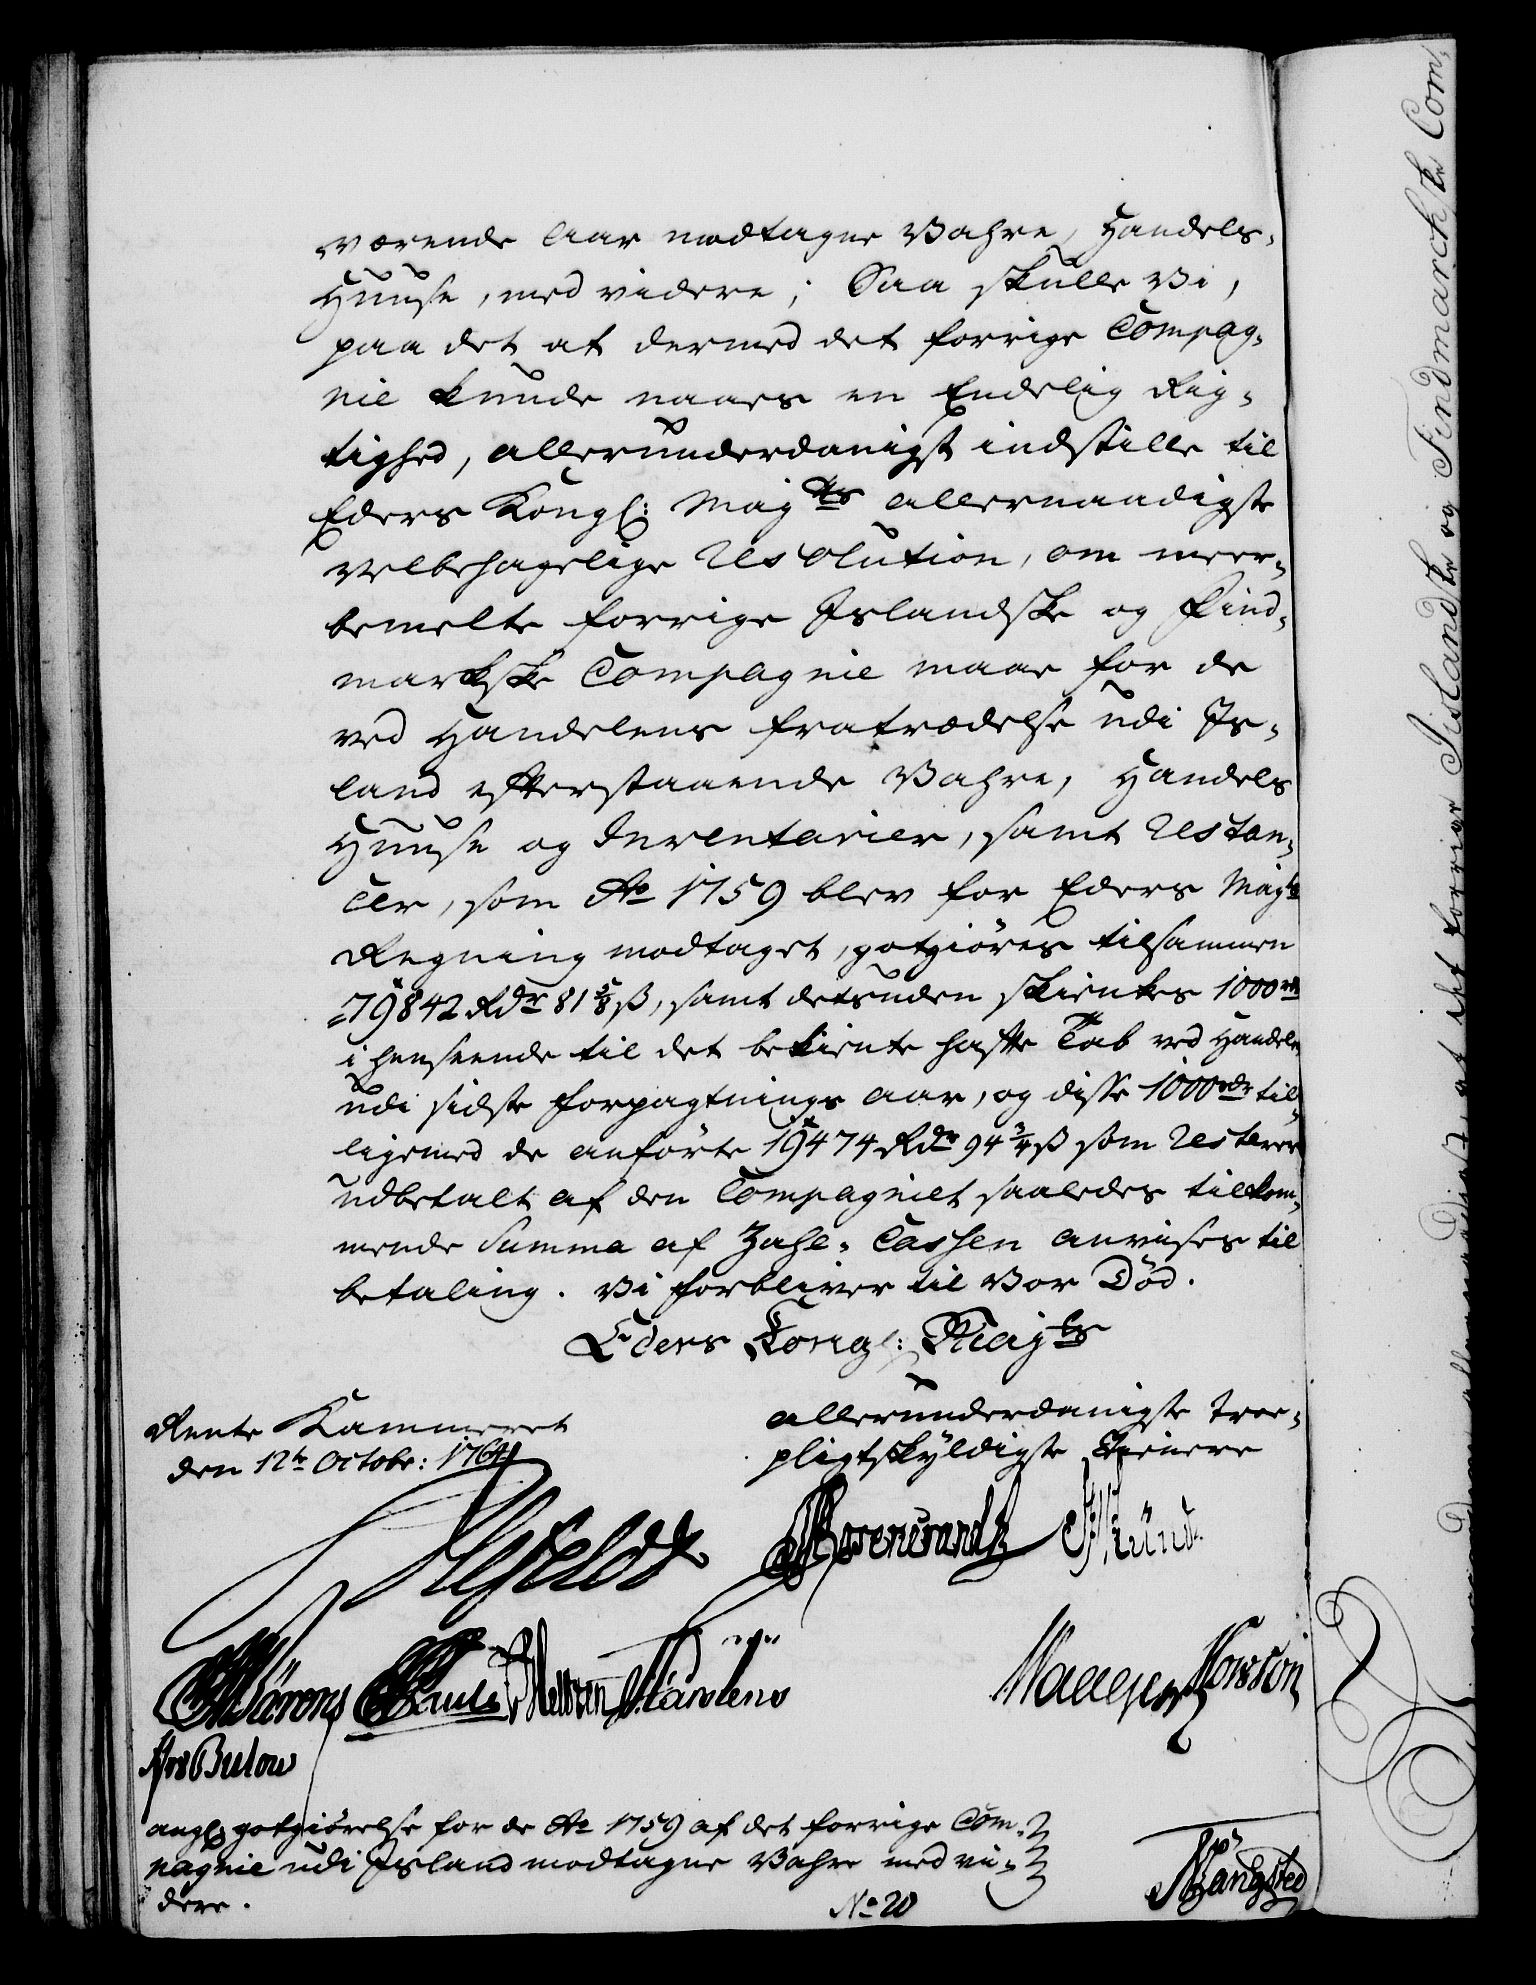 værende Aar modtagne Vahre, Handels-
Huuse, med videre; Saa skulle Vi,
paa det at dermed det forrige Compag-
nie kunde naaes en Endelig Rig-
tighed, allerunderdanigst indstille til
Eders Kongl: Mayts allernaadigste
velbehagelige Resolution, om meer-
bemelte forrige Islandske og Find-
markske Compagnie maae for de
ved Handelens fratrædelse udi Is-
land efterstaaende Vahre, Handels
Huuse og Inventarier, samt Restan-
cer, som Ao 1759 blev for Eders Mayts
Regning modtaget, godtgiøres tilsammen
79842 Rdr 81 5/8 ß, samt desuden skienkes 1000 rdr
i henseende til det bekiente hafte Tab ved Handelen
udi sidste forpagtnings Aar, og disse 1000 rdr til-
ligemed de anførte 19474 Rdr 94 3/4 ß som Resterer
udbetalt af den Compagniet saaledes tilkom-
mende Summa af Zahl-Cassen anvises til
betaling. Vi forbliver til Vor Død.
Eders Kongl: Mayts
Rente Kammeret
den 12te Octobr: 1764
allerunderdanigste Troe-
pligtskyldigste Tienere
Rosencrandtz
Bulow
ang: godtgiørelse for de Ao 1759 af det forrige Com-
pagnie udi Island modtagne Vahre med vi-
dere.
No 20
det forrige Iislandske og Findmarckske Com-